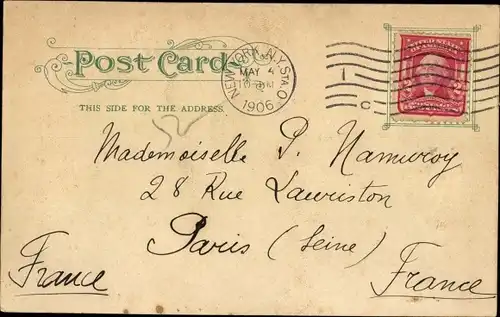 POST CARD
THIS SIDE FOR THE ADDRESS.
NEW YORK, N.Y. STA. O
MAY 4
1906
1
C
2
POSTAGE
Mademoiselle P. Namuroy
28 Rue Lauriston
Paris (Seine)
France
France